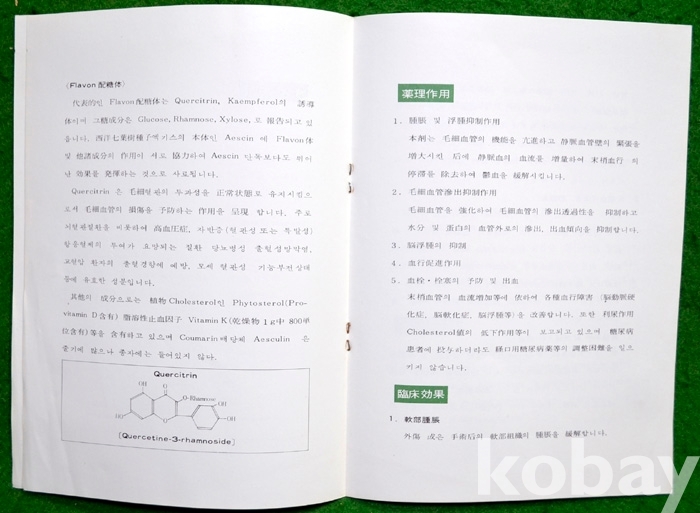 〈Flavon 配糖体〉
代表的인 Flavon配糖体는 Quercitrin, Kaempferol의 誘導
体이며 그糖成分은 Glucose, Rhamnose, Xylose, 로 報告되고 있
읍니다. 西洋七葉樹種子엑기스의 本体인 Aescin 에 Flavon体
및 他諸成分의 作用이 서로 協力하여 Aescin 단독보다도 뛰어
난 効果를 発揮하는 것으로 사료됩니다.
Quercitrin 은 毛細혈관의 투과성을 正常状態로 유지시킴으
로서 毛細血管의 損傷을 予防하는 作用을 呈現 합니다. 주로
뇌혈관질환을 비롯하여 高血圧症, 자반증(혈관성 또는 특발성)
항응혈제의 투여가 요망되는 질환 당뇨병성 출혈성망막염,
교원병 환자의 출혈경향에 예방, 모세 혈관성 기능부전상태
等에 유효한 성분입니다.
其他의 成分으로는 植物 Cholesterol인 Phytosterol(Pro-
vitamin D含有) 脂溶性止血因子 Vitamin K(乾燥物 1g中 800単
位含有)等을 含有하고 있으며 Coumarin배당체 Aesculin 은
줄기에 많으나 종자에는 들어있지 않다.
Quercitrin
OH
O
O-Rhamnose
OH
HO
O
OH
[Quercetine-3-rhamnoside]
薬理作用
1. 腫脹 및 浮腫抑制作用
本剤는 毛細血管의 機能을 亢進하고 静脈血管壁의 緊張을
増大시킨 后에 静脈血의 血流을 増量하여 末梢血行 의
停滞을 除去하여 鬱血을 緩解시킵니다.
2. 毛細血管滲出抑制作用
毛細血管을 強化하여 毛細血管의 滲出透過性을 抑制하고
水分 및 蛋白의 血管外로의 滲出, 出血傾向을 抑制합니다.
3. 脳浮腫의 抑制
4. 血行促進作用
5. 血栓・栓塞의 予防 및 出血
末梢血管의 血流増加等에 依하여 各種血行障害 (脳動脈硬
化症, 脳軟化症, 脳浮腫等)을 改善합니다. 또한 利尿作用
Cholesterol値의 低下作用等이 보고되고 있으며 糖尿病
患者에 投与하더라도 経口用糖尿病薬等의 調整困難을 일으
키지 않습니다.
臨床効果
1. 軟部腫脹
外傷 或은 手術后의 軟部組織의 腫脹을 緩解합니다.
kobay